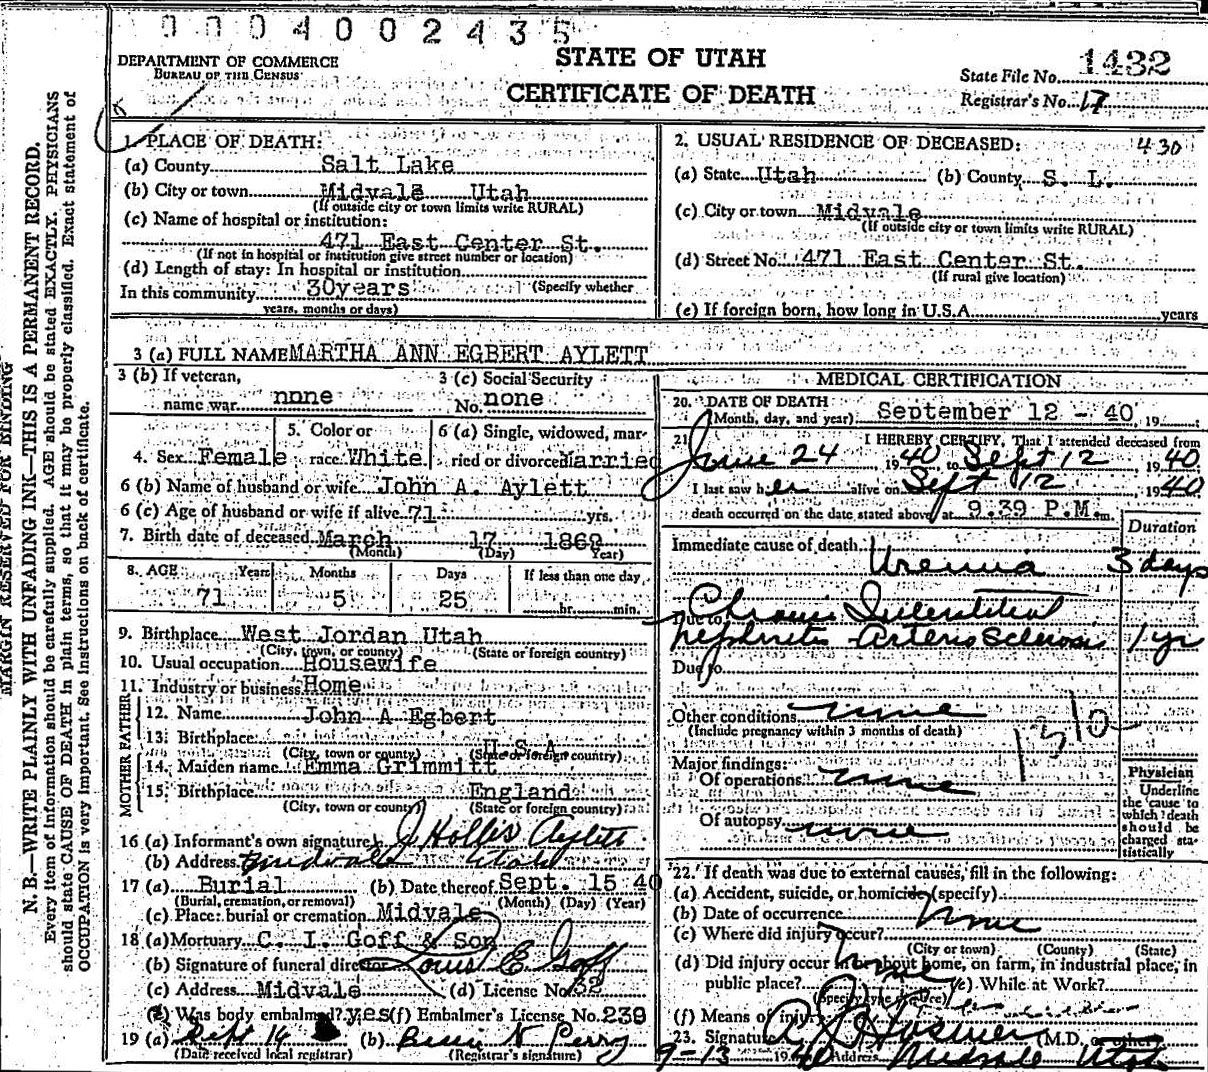 0004002435
DEPARTMENT OF COMMERCE
BUREAU OF THE CENSUS
STATE OF UTAH
CERTIFICATE OF DEATH
State File No. 1432
Registrar's No. 17
MARGIN RESERVED FOR BINDING
N. B.—WRITE PLAINLY WITH UNFADING INK—THIS IS A PERMANENT RECORD.
Every item of information should be carefully supplied. AGE should be stated EXACTLY. PHYSICIANS
should state CAUSE OF DEATH in plain terms, so that it may be properly classified. Exact statement of
OCCUPATION is very important. See instructions on back of certificate.
1. PLACE OF DEATH:
(a) County Salt Lake
(b) City or town Midvale Utah
(If outside city or town limits write RURAL)
(c) Name of hospital or institution:
471 East Center St.
(If not in hospital or institution give street number or location)
(d) Length of stay: In hospital or institution
In this community 30years (Specify whether
years, months or days)
2. USUAL RESIDENCE OF DECEASED: 430
(a) State Utah (b) County S. L.
(c) City or town Midvale
(If outside city or town limits write RURAL)
(d) Street No. 471 East Center St.
(If rural give location)
(e) If foreign born, how long in U.S.A. years
3 (a) FULL NAME MARTHA ANN EGBERT AYLETT
3 (b) If veteran, name war none
3 (c) Social Security No. none
4. Sex Female
5. Color or race White
6 (a) Single, widowed, married or divorced Married
6 (b) Name of husband or wife John A. Aylett
6 (c) Age of husband or wife if alive 71 yrs.
7. Birth date of deceased March 17 1869
(Month) (Day) (Year)
8. AGE Years Months Days If less than one day
71 5 25 hr. min.
9. Birthplace West Jordan Utah
(City, town, or county) (State or foreign country)
10. Usual occupation Housewife
11. Industry or business Home
FATHER
12. Name John A Egbert
13. Birthplace U.S.A.
(City, town or county) (State or foreign country)
MOTHER
14. Maiden name Emma Grimmitt
15. Birthplace England
(City, town or county) (State or foreign country)
16 (a) Informant's own signature J Hollis Aylett
(b) Address Midvale Utah
17 (a) Burial (b) Date thereof Sept. 15 40
(Burial, cremation, or removal) (Month) (Day) (Year)
(c) Place: burial or cremation Midvale
18 (a) Mortuary C. I. Goff & Son
(b) Signature of funeral director Louis E. Goff
(c) Address Midvale (d) License No. 32
(e) Was body embalmed? yes (f) Embalmer's License No. 239
19 (a) Sept 14 (b) N Perry
(Date received local registrar) (Registrar's signature)
MEDICAL CERTIFICATION
20. DATE OF DEATH
(Month, day, and year) September 12 - 40, 19
21. I HEREBY CERTIFY, That I attended deceased from
June 24, 1940, to Sept 12, 1940
I last saw her alive on Sept 12, 1940
death occurred on the date stated above, at 9.39 P.M. m.
Duration
Immediate cause of death Uremia 3 days
Due to Chronic Interstitial
nephritis Arterio sclerosis 1 yr
Due to
Other conditions none
(Include pregnancy within 3 months of death)
1310
Major findings:
Of operations none
Of autopsy none
Physician
Underline
the cause to
which death
should be
charged sta-
tistically
22. If death was due to external causes, fill in the following:
(a) Accident, suicide, or homicide (specify)
(b) Date of occurrence none
(c) Where did injury occur?
(City or town) (County) (State)
(d) Did injury occur in or about home, on farm, in industrial place, in
public place? none (e) While at Work?
(Specify type of place)
(f) Means of injury
23. Signature (M.D. or other)
9-13 1940 Address Midvale Utah